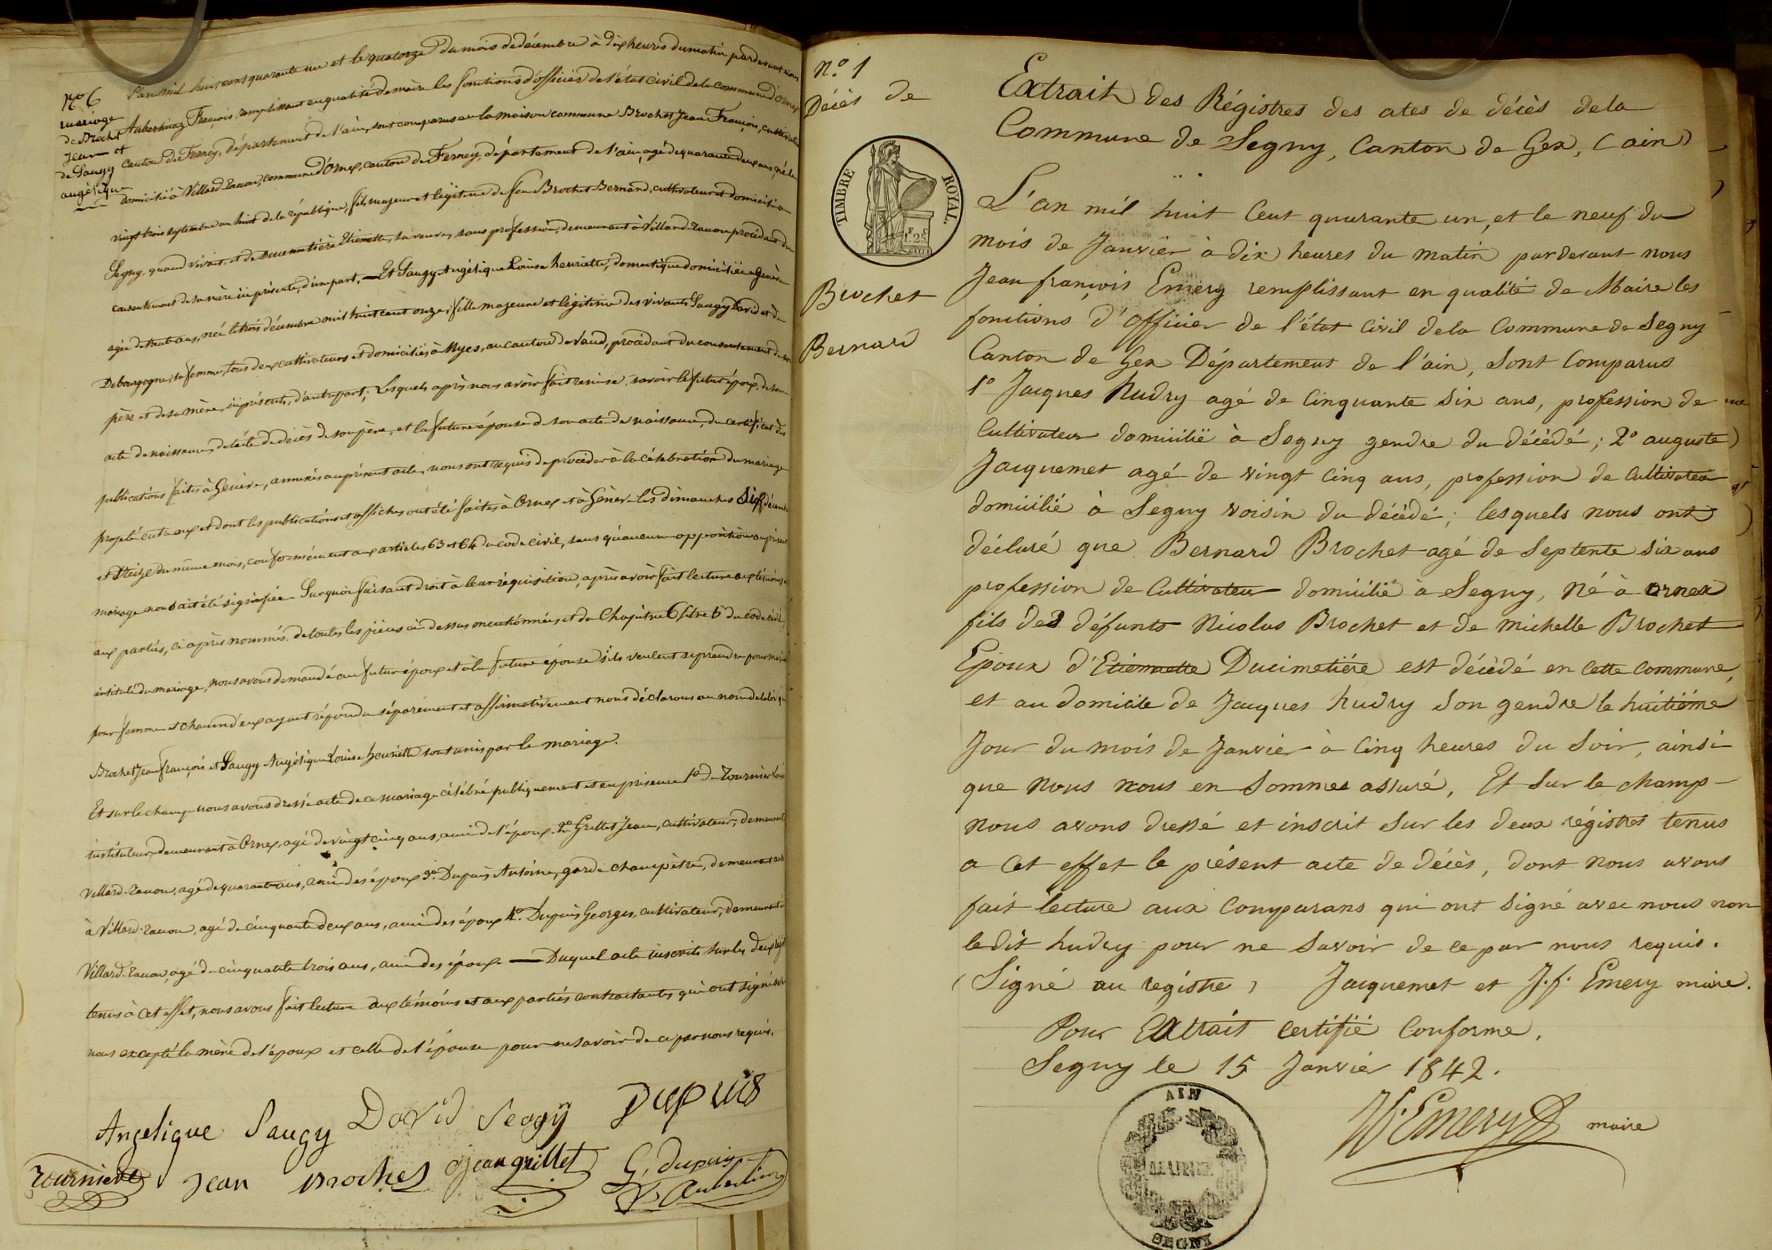 N.o 6
mariage
de Brochet
Jean et
de Saugy
angélique
L'an mil huit cent quarante un et le quatorze du mois de décembre à dix heures du matin pardevant nous
Aubertinaz François remplissant en qualité de maire les fonctions d'officier de l'état civil de la commune d'Ornex
canton de Ferney, département de l'ain, sont comparus en la maison commune Brochet Jean François, cultivateur
domicilié à Villard-Tacon, commune d'Ornex, canton de Ferney, département de l'ain, agé de quarante deux ans, né le
vingt trois septembre an huit de la république, fils majeur et légitime de feu Brochet Bernard, cultivateur et domicilié à
Segny, quand vivait, et de Ducimetière Etiennette, sa veuve, sans profession, demeurant à Villard Tacon procédant du
consentement de sa mère ici présente, d'une part, — Et Saugy Angélique Louise henriette, domestique domiciliée à Genève
agée de trente ans, née le trois décembre mil huit cent onze, fille majeure et légitime des vivants Saugy David et de
Debourgogne, sa femme, tous deux cultivateurs et domiciliés à Myes, au canton de Vaud, procédant du consentement de son
père et de sa mère, ici présents, d'autre part; Lesquels après nous avoir fait remise, savoir le futur époux, de son
acte de naissance, de celui de décès de son père, et la future épouse de son acte de naissance, du certificat des
publications faites à Genève, annexés au présent acte, nous ont requis de procéder à la célébration du mariage
projeté entre eux et dont les publications et affiches ont été faites à Ornex et à Genève les dimanches Six décembre
et treize du même mois, conformément aux articles 63 et 64 du code civil, sans qu'aucune opposition au présent
mariage nous ait été signifiée Surquoi faisant droit à leur réquisition, après avoir fait lecture aux témoins et
aux parties, ci après nommés de toutes les pièces ci dessus mentionnées et du Chapitre 6 titre 5 du code civil
intitulé du mariage, nous avons demandé au futur époux et à la future épouse s'ils veulent se prendre pour mari et
pour femme et chacun d'eux ayant répondu séparément et affirmativement nous déclarons au nom de la loi que
Brochet Jean François et Saugy Angélique Louise henriette sont unis par le mariage.
Et sur le champ nous avons dressé acte de ce mariage célébré publiquement et en présence 1.o de Tournier
instituteur, demeurant à Ornex, agé de vingt cinq ans, ami de l'époux, 2.o Grillet Jean, cultivateur, demeurant
Villard-Tacon, agé de quarante ans, ami des époux 3.o Dupuis Antoine, garde champêtre, demeurant
à Villard-Tacon, agé de cinquante deux ans, ami des époux 4.o Dupuis Georges, cultivateur, demeurant à
Villard-Tacon, agé de cinquante trois ans, ami des époux — Duquel acte inscrit sur les deux registres
tenus à cet effet, nous avons fait lecture aux témoins et aux parties contractantes, qui ont signé avec
nous excepté la mère de l'époux et celle de l'épouse pour ne savoir de ce par nous requis.
Angelique Saugy David Seogy Dupuis
Tournier Jean Brochet Jean grillet G. dupuis
F. Aubertinaz
N.o 1
Décès de
TIMBRE ROYAL
Brochet
Bernard
Extrait des Régistres des ates de décès de la
Commune de Segny, Canton de Gex, (ain)
L'an mil huit Cent quarante un, et le neuf du
mois de Janvier à dix heures du matin pardevant nous
Jean françois Emery remplissant en qualité de Maire les
fonctions d'officier de l'état Civil de la Commune de Segny
Canton de Gex Département de l'ain, sont Comparus
1.o Jacques Hudry agé de Cinquante Six ans, profession de
Cultivateur domicilié à Segny gendre du décédé; 2.o auguste
Jacquemet agé de vingt Cinq ans, profession de Cultivateur
domicilié à Segny voisin du décédé; lesquels nous ont
déclaré que Bernard Brochet agé de Septente Six ans
profession de Cultivateur domicilié à Segny, Né à ornex
fils des défunts Nicolas Brochet et de michelle Brochet
Epoux d'Etiennette Ducimetiére est décédé en cette commune,
et au domicile de Jacques hudry son gendre le huitiéme
Jour du mois de Janvier à Cinq heures du Soir, ainsi
que nous nous en sommes assuré, Et sur le champ
nous avons dressé et inscrit sur les deux régistres tenus
a cet effet le présent acte de décès, dont nous avons
fait lecture aux Comparans qui ont signé avec nous non
ledit hudry pour ne savoir de ce par nous requis.
(Signé au registre) Jacquemet et J.f. Emery maire.
Pour Extrait certifié Conforme.
Segny le 15 Janvier 1842.
Emery maire
AIN
MAIRIE
SEGNY